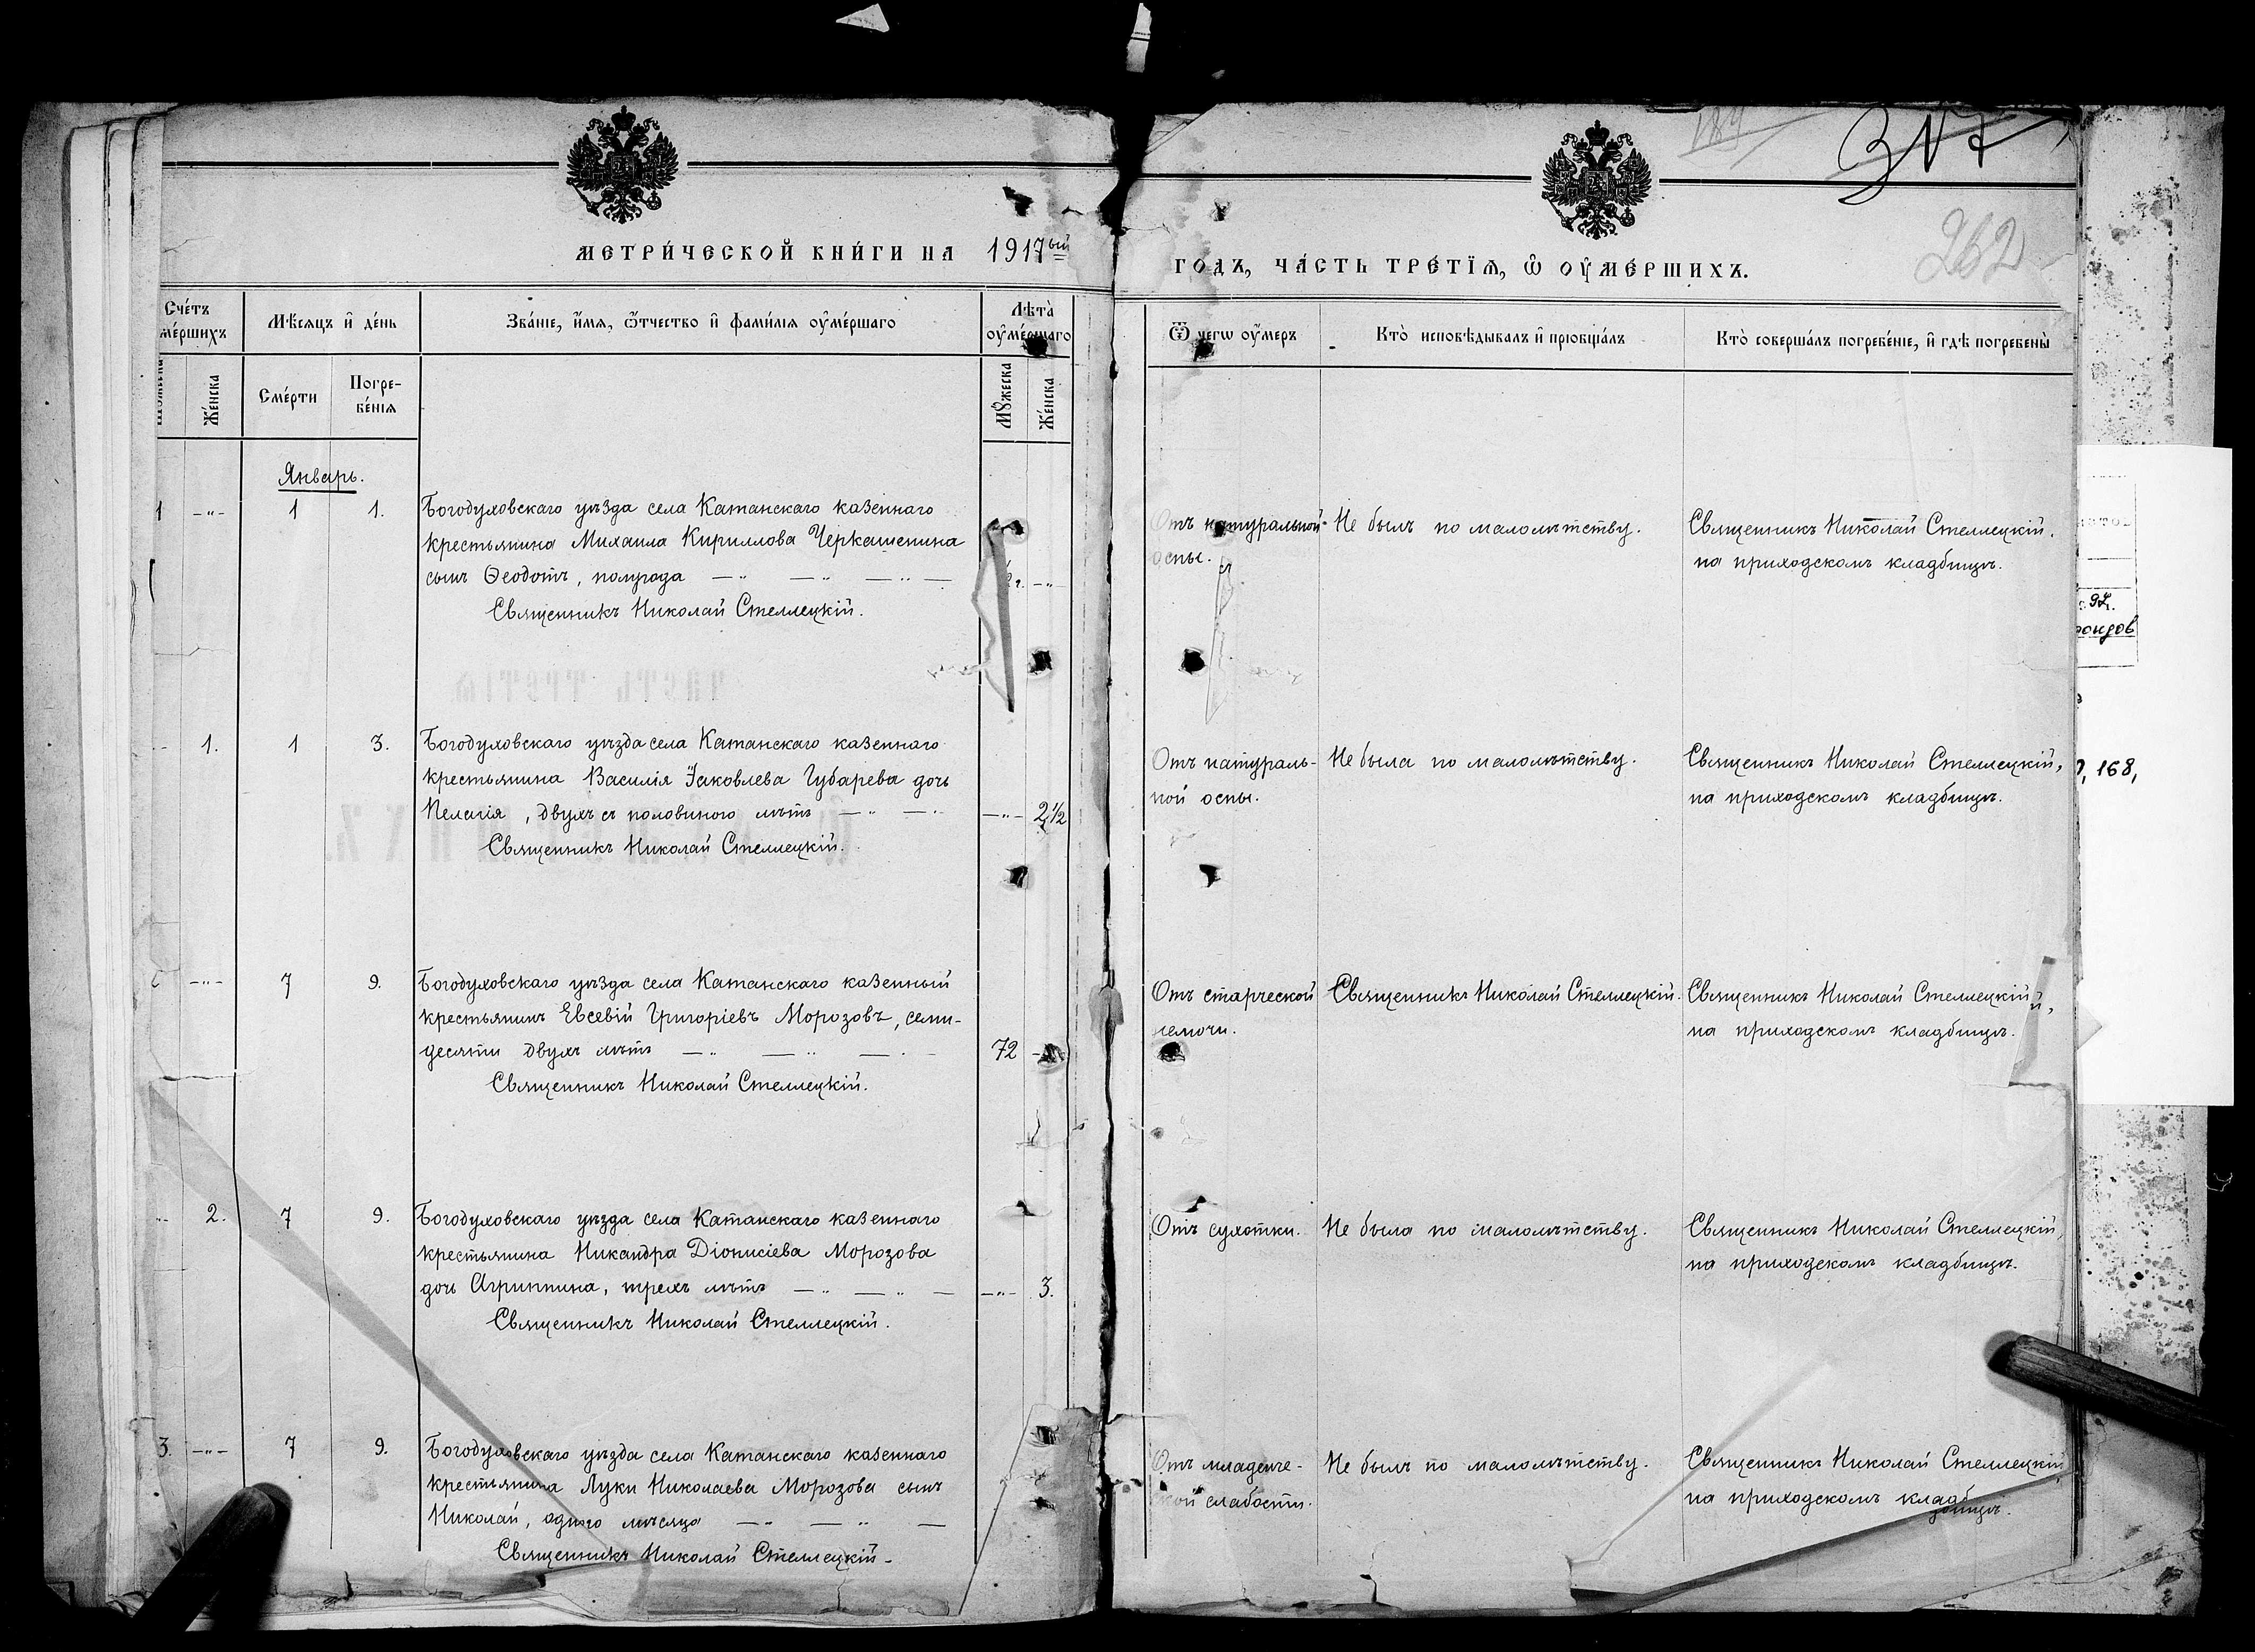 317
262
МЕТРИ́ЧЕСКОЙ КНИ́ГИ НА 1917ый
ГОДЪ, ЧА́СТЬ ТРЕ́ТЇѦ, Ѡ҆ ОУ҆МЕ́РШИХЪ.
Сче́тъ
ме́ршихъ
Мѣ́сяцъ и҆ де́нь
Зва́нїе, и҆́мѧ, ѻ҆́тчество и҆ фами́лїѧ оу҆ме́ршаго
Лѣта̀
оу҆ме́ршаго
Ѿ чегѡ оу҆́меръ
Кто̀ исповѣ́дывалъ и҆ прїобща́лъ
Кто̀ соверша́лъ погребе́нїе, и҆ гдѣ̀ погребены̀
Же́нска
Сме́рти
Погре-
бе́нїѧ
Мꙋ́жеска
Же́нска
Январь.
1 -"- 1 1.
Богодуховскаго уѣзда села Катанскаго казеннаго
крестьянина Михаила Кириллова Черкашенина
сынъ Ѳеодотъ, полугода — " — " — " —
½ г. -"-
Священникъ Николай Стеллецкій.
Отъ натуральной
оспы.
Не былъ по малолѣтству.
Священникъ Николай Стеллецкій.
на приходскомъ кладбищѣ.
1. 1 3.
Богодуховскаго уѣзда села Катанскаго казеннаго
крестьянина Василія Іаковлева Губарева дочь
Пелагія, двухъ съ половиною лѣтъ — " — "
—"— 2 1/2
Священникъ Николай Стеллецкій.
Отъ натураль-
ной оспы.
Не была по малолѣтству.
Священникъ Николай Стеллецкій,
на приходскомъ кладбищѣ.
-"- 7 9.
Богодуховскаго уѣзда села Катанскаго казенный
крестьянинъ Евсевій Григоріевъ Морозовъ, семи-
десяти двухъ лѣтъ — " — " — " —
72
Священникъ Николай Стеллецкій.
Отъ старческой
немочи.
Священникъ Николай Стеллецкій.
Священникъ Николай Стеллецкій,
на приходскомъ кладбищѣ.
2. 7 9.
Богодуховскаго уѣзда села Катанскаго казеннаго
крестьянина Никандра Діонисіева Морозова
дочь Агриппина, трехъ лѣтъ — " — " —
—"— 3.
Священникъ Николай Стеллецкій.
Отъ сухотки.
Не была по малолѣтству.
Священникъ Николай Стеллецкій,
на приходскомъ кладбищѣ.
3. -"- 7 9.
Богодуховскаго уѣзда села Катанскаго казеннаго
крестьянина Луки Николаева Морозова сынъ
Николай, одного мѣсяца — " — " —
Священникъ Николай Стеллецкій.
Отъ младенче-
ской слабости.
Не былъ по малолѣтству.
Священникъ Николай Стеллецкій
на приходскомъ кладб
бищѣ.
92.
фондов
168,